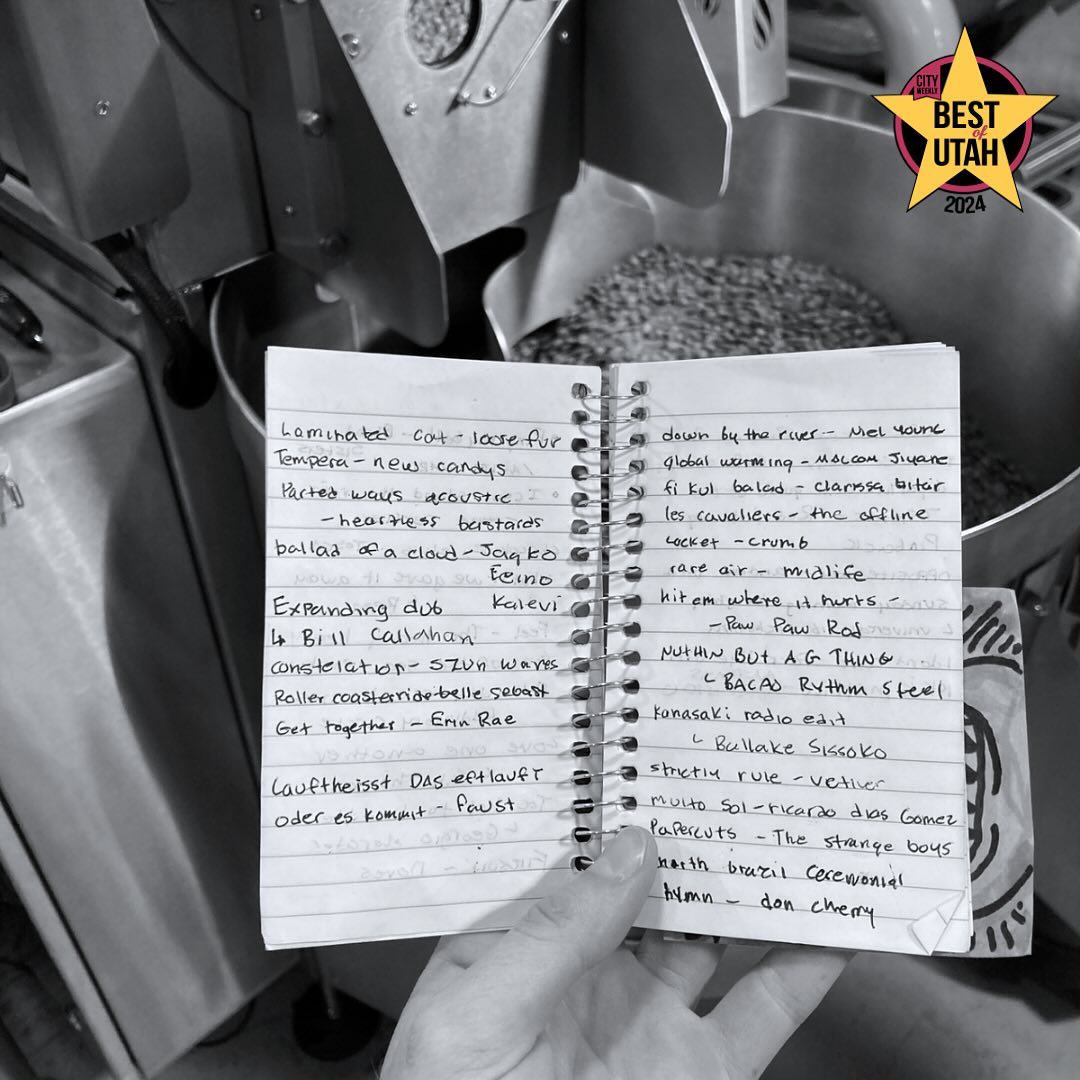 CITY WEEKLY
BEST
of
UTAH
2024
Laminated cat - loose fur
Tempera - new candys
Parted ways acoustic
- heartless bastards
ballad of a cloud - Jaakko
Eeino
Expanding dub Kalevi
↳ Bill Callahan
constelation - szun waves
Roller coasterride - belle sebast
Get together - Erin Rae
Lauftheisst DAS eftlauft
oder es kommt - faust
down by the river - Mei young
global warming - Malcom Jiyane
fi kul balad - clarissa bitar
les cavaliers - the offline
Locket - crumb
rare air - midlife
hit em where it hurts -
- Paw Paw Rod
NUTHIN BUT A G THING
└ BACAO Rythm Steel
kanasaki radio edit
└ Ballake Sissoko
strictly rule - vetiver
muito sol - ricardo dias Gomez
Papercuts - The strange boys
north brazil ceremonial
hymn - don cherry